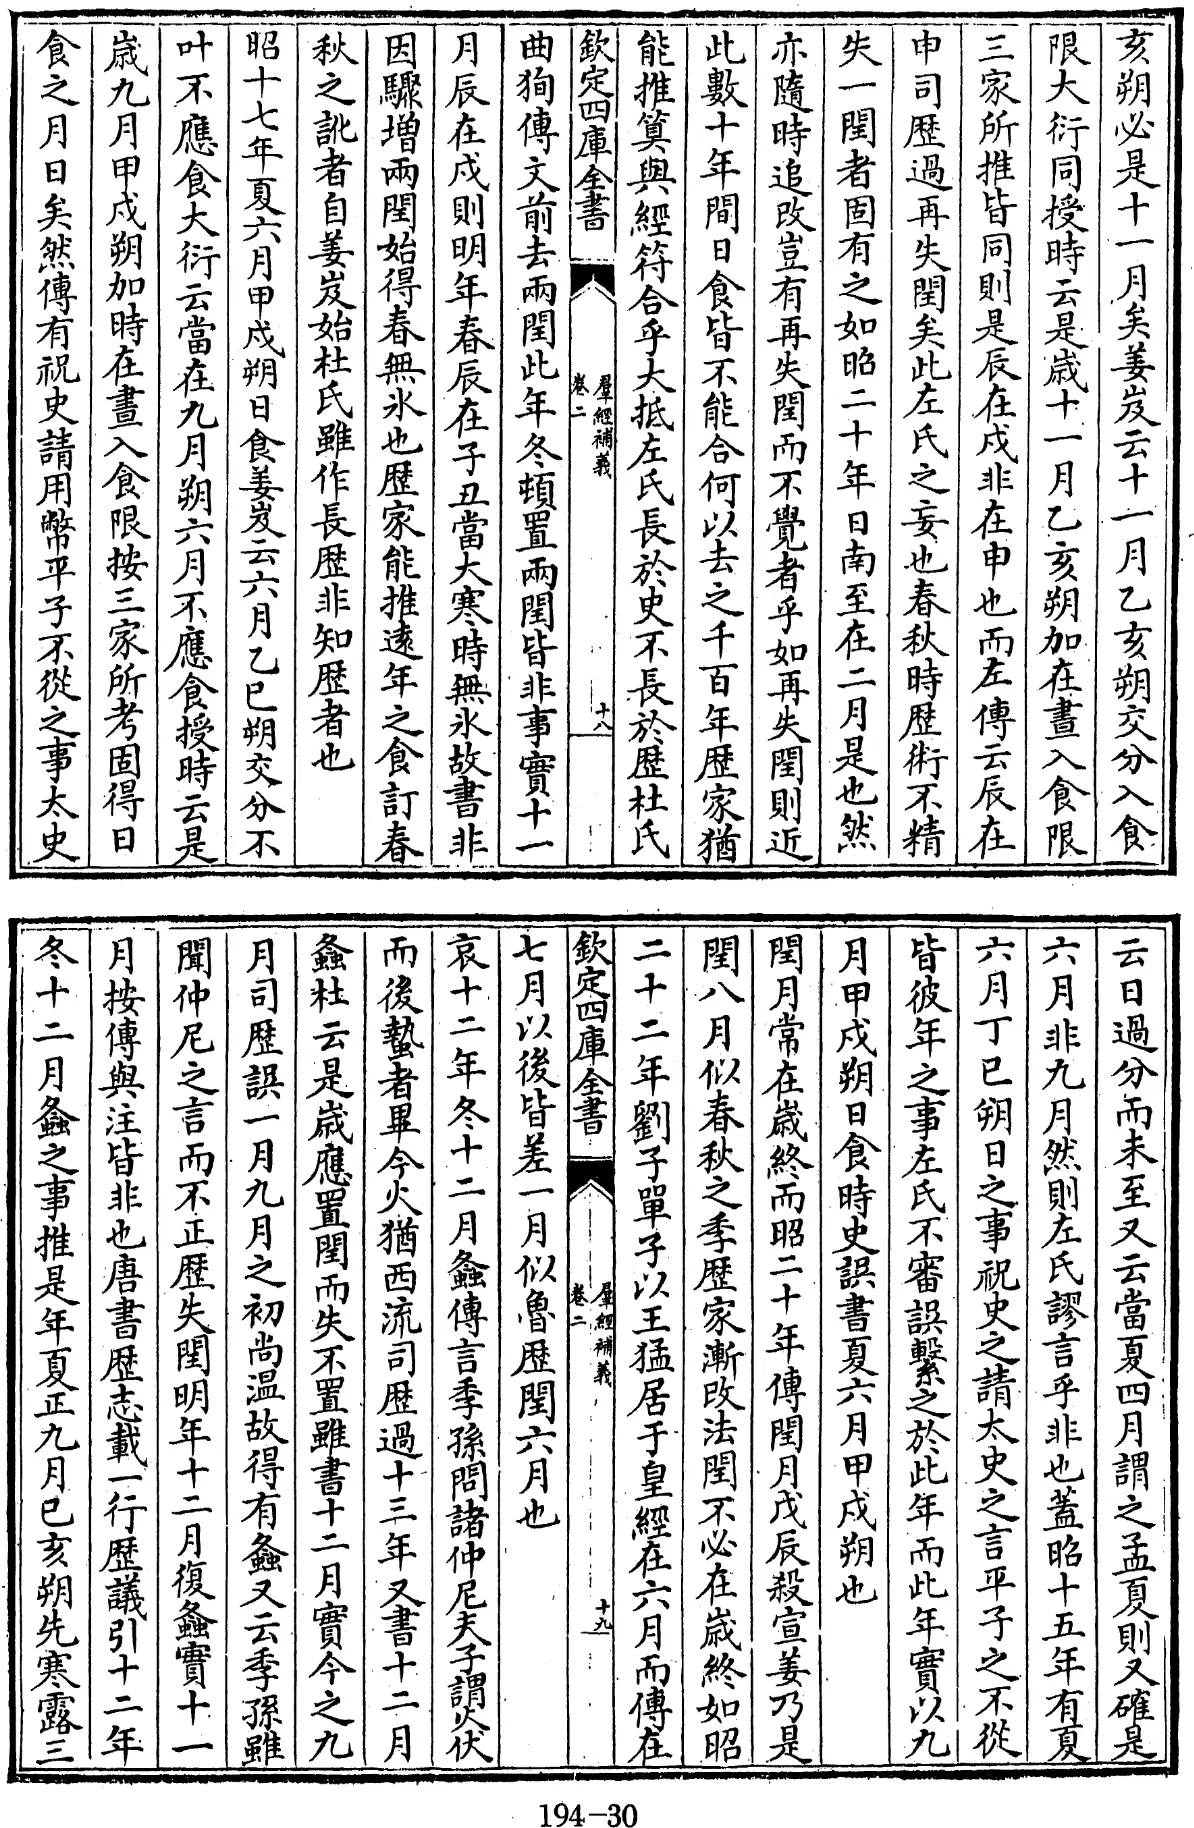 亥朔必是十一月矣姜岌云十一月乙亥朔交分入食
限大衍同授時云是歲十一月乙亥朔加在晝入食限
三家所推皆同則是辰在戌非在申也而左傳云辰在
申司歴過再失閏矣此左氏之妄也春秋時歴術不精
失一閏者固有之如昭二十年日南至在二月是也然
亦隨時追改豈有再失閏而不覺者乎如再失閏則近
此數十年間日食皆不能合何以去之千百年歴家猶
能推算與經符合乎大抵左氏長於史不長於歴杜氏
欽定四庫全書
羣經補義
卷二
十八
曲狥傳文前去兩閏此年冬頓置兩閏皆非事實十一
月辰在戌則明年春辰在子丑當大寒時無氷故書非
因驟增兩閏始得春無氷也歴家能推遠年之食訂春
秋之訛者自姜岌始杜氏雖作長歴非知歴者也
昭十七年夏六月甲戌朔日食姜岌云六月乙巳朔交分不
叶不應食大衍云當在九月朔六月不應食授時云是
歲九月甲戌朔加時在晝入食限按三家所考固得日
食之月日矣然傳有祝史請用幣平子不從之事太史
云日過分而未至又云當夏四月謂之孟夏則又確是
六月非九月然則左氏謬言乎非也蓋昭十五年有夏
六月丁巳朔日之事祝史之請太史之言平子之不從
皆彼年之事左氏不審誤繫之於此年而此年實以九
月甲戌朔日食時史誤書夏六月甲戌朔也
閏月常在歲終而昭二十年傳閏月戊辰殺宣姜乃是
閏八月似春秋之季歴家漸改法閏不必在歲終如昭
二十二年劉子單子以王猛居于皇經在六月而傳在
欽定四庫全書
羣經補義
卷二
十九
七月以後皆差一月似魯歴閏六月也
哀十二年冬十二月螽傳言季孫問諸仲尼夫子謂火伏
而後蟄者畢今火猶西流司歴過十三年又書十二月
螽杜云是歲應置閏而失不置雖書十二月實今之九
月司歴誤一月九月之初尚温故得有螽又云季孫雖
聞仲尼之言而不正歴失閏明年十二月復螽實十一
月按傳與注皆非也唐書歴志載一行歴議引十二年
冬十二月螽之事推是年夏正九月己亥朔先寒露三
194-30